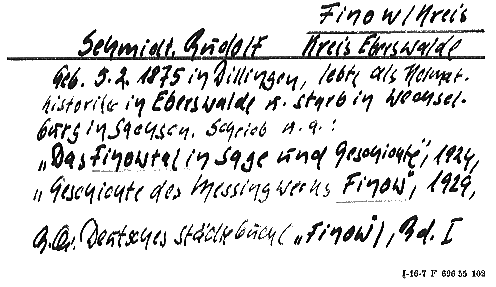 Finow/Kreis
Schmidt, Rudolf Kreis Eberswalde
Geb. 5.2. 1875 in Dillingen, lebte als Heimat-
historiker in Eberswalde u. starb in Wechsel-
burg in Sachsen. Schrieb u.a.:
„Das Finowtal in Sage und Geschichte", 1924,
„Geschichte des Messingwerks Finow", 1929,
Deutsches Städtebuch („Finow"), Bd. I
I-16-7 F 696 55 102